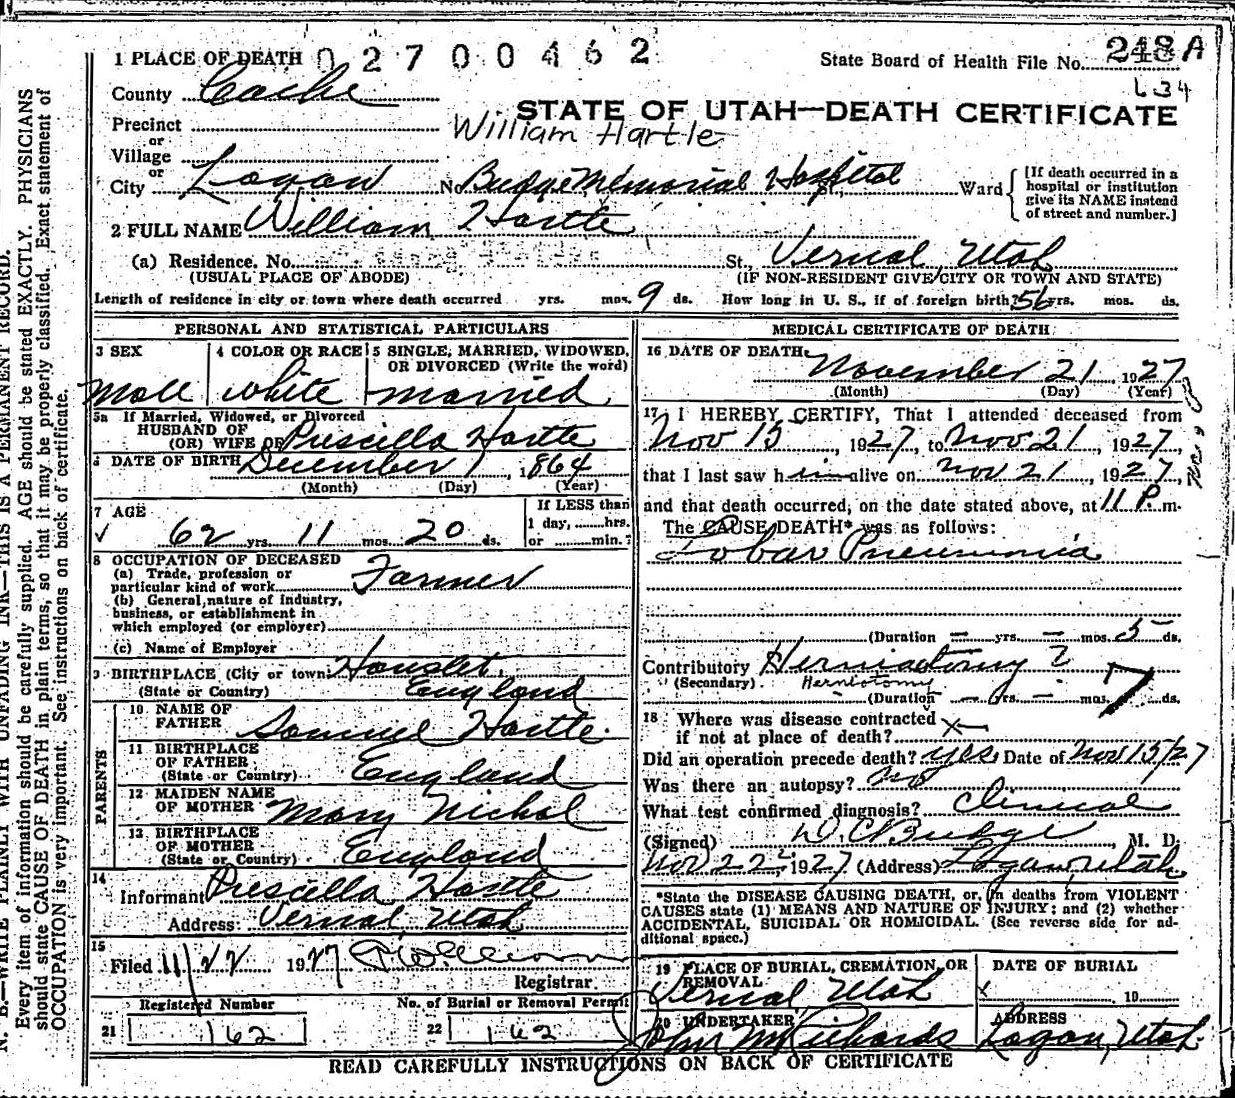 1 PLACE OF DEATH 02700462
State Board of Health File No. 248 A
County Cache
L34
STATE OF UTAH—DEATH CERTIFICATE
Precinct
William Hartle
or
Village
or
City Logan No. Budge Memorial Hospital St., Ward
[If death occurred in a hospital or institution give its NAME instead of street and number.]
2 FULL NAME William Hartle
(a) Residence, No. St., Vernal, Utah
(USUAL PLACE OF ABODE) (IF NON-RESIDENT GIVE CITY OR TOWN AND STATE)
Length of residence in city or town where death occurred yrs. mos. 9 ds. How long in U. S., if of foreign birth? 56 yrs. mos. ds.
PERSONAL AND STATISTICAL PARTICULARS
3 SEX 4 COLOR OR RACE 5 SINGLE, MARRIED, WIDOWED, OR DIVORCED (Write the word)
Male white married
5a If Married, Widowed, or Divorced
HUSBAND OF
(OR) WIFE OF Priscilla Hartle
6 DATE OF BIRTH December 1, 1864
(Month) (Day) (Year)
7 AGE If LESS than
62 yrs. 11 mos. 20 ds. 1 day, hrs.
or min.?
8 OCCUPATION OF DECEASED
(a) Trade, profession or
particular kind of work Farmer
(b) General nature of industry,
business, or establishment in
which employed (or employer)
(c) Name of Employer
9 BIRTHPLACE (City or town)
(State or Country) England
PARENTS
10 NAME OF
FATHER Samuel Hartle.
11 BIRTHPLACE
OF FATHER
(State or Country) England
12 MAIDEN NAME
OF MOTHER Mary Nichol
13 BIRTHPLACE
OF MOTHER
(State or Country) England
14
Informant Priscilla Hartle
Address Vernal, Utah
15
Filed 11/22 1927
Registrar.
Registered Number No. of Burial or Removal Permit
21 162 22 162
MEDICAL CERTIFICATE OF DEATH
16 DATE OF DEATH
November 21, 1927
(Month) (Day) (Year)
17 I HEREBY CERTIFY, That I attended deceased from
Nov 15, 1927, to Nov 21, 1927,
that I last saw him alive on Nov 21, 1927,
and that death occurred, on the date stated above, at 11 P. m.
The CAUSE DEATH* was as follows:
Lobar Pneumonia
(Duration — yrs. — mos. 5 ds.
Contributory Herniotomy ?
(Secondary) Herniotomy
(Duration — yrs. — mos. 7 ds.
18 Where was disease contracted
if not at place of death? x—
Did an operation precede death? yes, Date of Nov 15/27
Was there an autopsy? no
What test confirmed diagnosis? Clinical
(Signed) D C Budge M. D.
Nov 22, 1927 (Address) Logan, Utah
*State the DISEASE CAUSING DEATH, or, in deaths from VIOLENT
CAUSES state (1) MEANS AND NATURE OF INJURY; and (2) whether
ACCIDENTAL, SUICIDAL OR HOMICIDAL. (See reverse side for ad-
ditional space.)
19 PLACE OF BURIAL, CREMATION, OR DATE OF BURIAL
REMOVAL
Vernal Utah 19
20 UNDERTAKER ADDRESS
John M Richards Logan, Utah.
READ CAREFULLY INSTRUCTIONS ON BACK OF CERTIFICATE
N. B.—WRITE PLAINLY WITH UNFADING INK—THIS IS A PERMANENT RECORD.
Every item of information should be carefully supplied. AGE should be stated EXACTLY. PHYSICIANS
should state CAUSE OF DEATH in plain terms, so that it may be properly classified. Exact statement of
OCCUPATION is very important. See instructions on back of certificate.